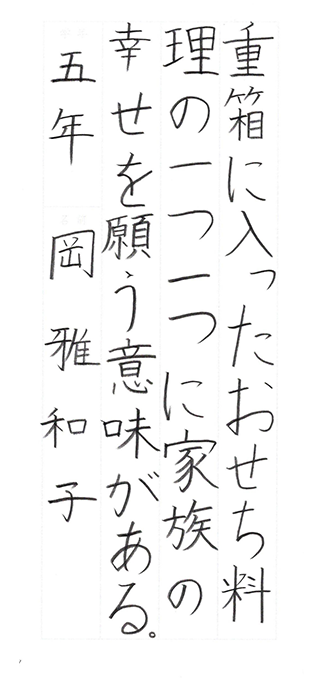 重箱に入ったおせち料
理の一つ一つに家族の
幸せを願う意味がある。
五年 岡雅和子